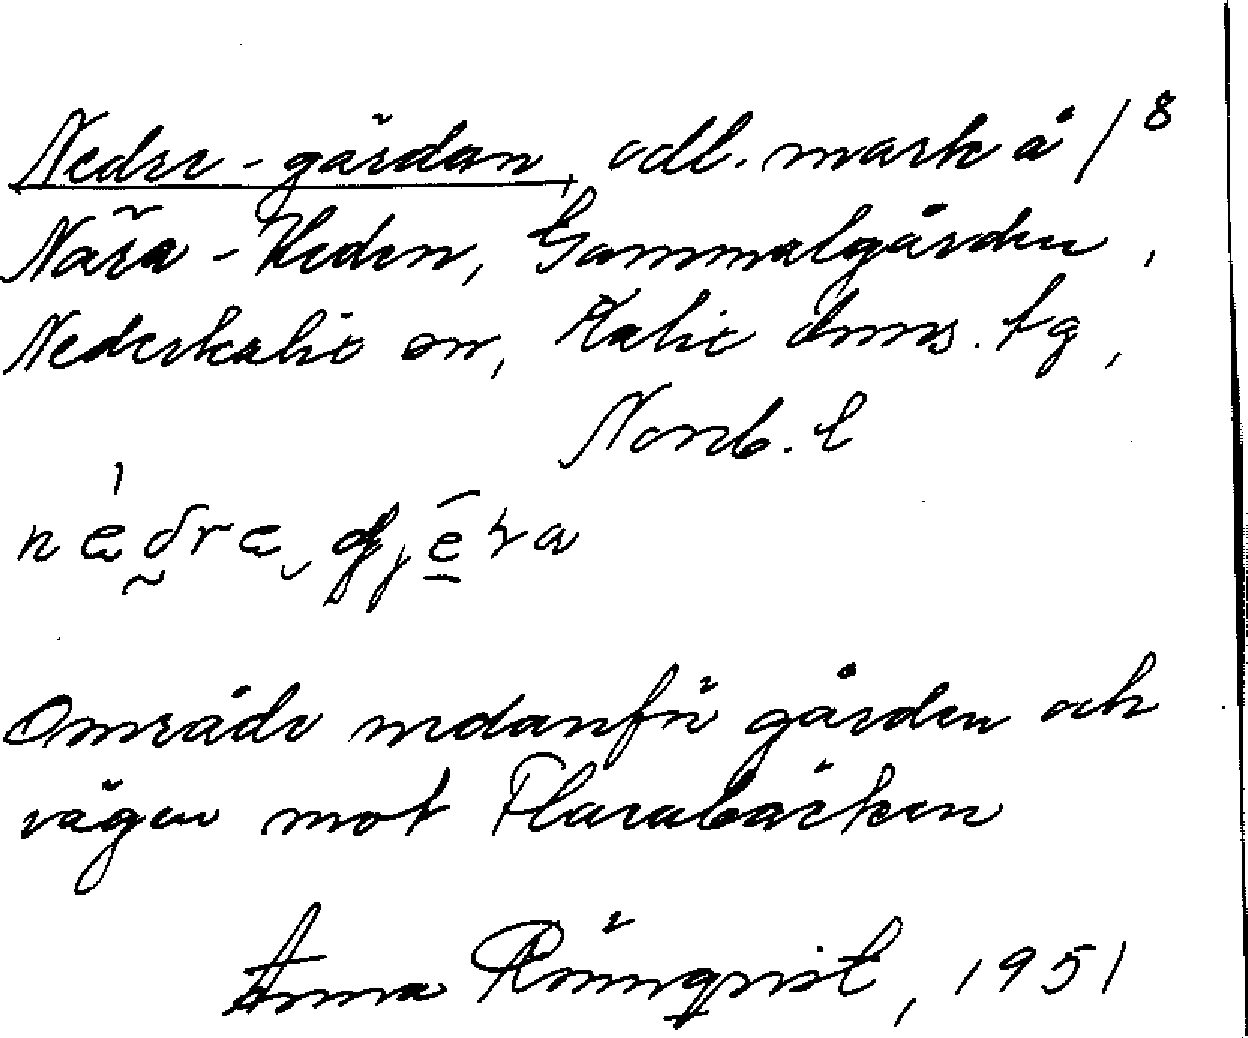 Nedre-gärdan, odl. mark å 1/8
Nära-Heden, Gammelgården,
Nederkalix sn, Kalix dms. tg,
Norrb. l
nedre gjera
Område nedanför gården och
vägen mot Flarabäcken
Anna Rönnqvist, 1951